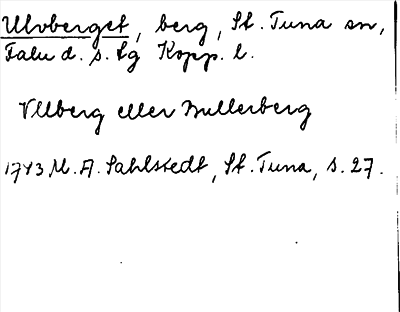 Ulvberget, berg, St. Tuna sn,
Falu d. s. lg Kopp. l.
Ullberg eller Bullerberg
1743 M. A. Sahlstedt, St. Tuna, s. 27.